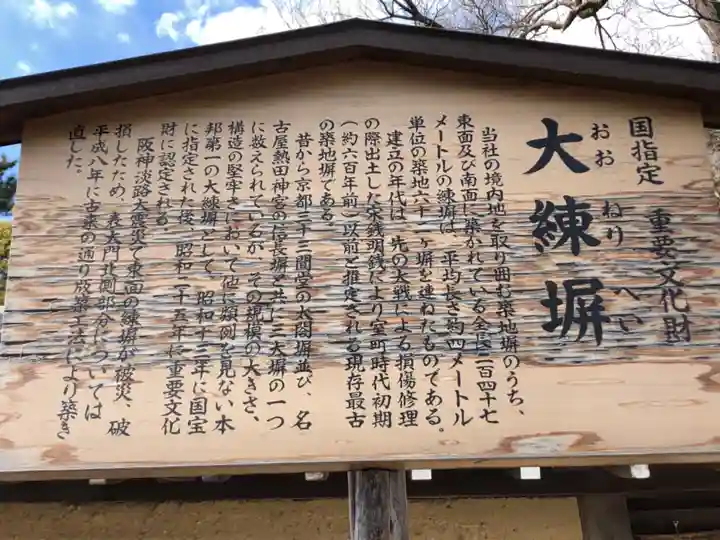 国指定 重要文化財
おお ねり へい
大練塀
当社の境内地を取り囲む築地塀のうち、
東面及び南面に築かれている全長二百四十七
メートルの練塀は、平均長さ約四メートル
単位の築地六十一ヶ塀を連ねたものである。
建立の年代は、先の大戦による損傷修理
の際出土した宋銭明銭により室町時代初期
(約六百年前)以前と推定される現存最古
の築地塀である。
昔から京都三十三間堂の太閤塀並び、名
古屋熱田神宮の信長塀と共に三大塀の一つ
に数えられているが、その規模の大きさ、
構造の堅牢さにおいて他に類例を見ない本
邦第一の大練塀として、昭和十三年に国宝
に指定された後、昭和二十五年に重要文化
財に認定される。
阪神淡路大震災で東面の練塀が被災、破
損したため、表大門北側部分については
平成八年に古来の通り版築工法により築き
直した。